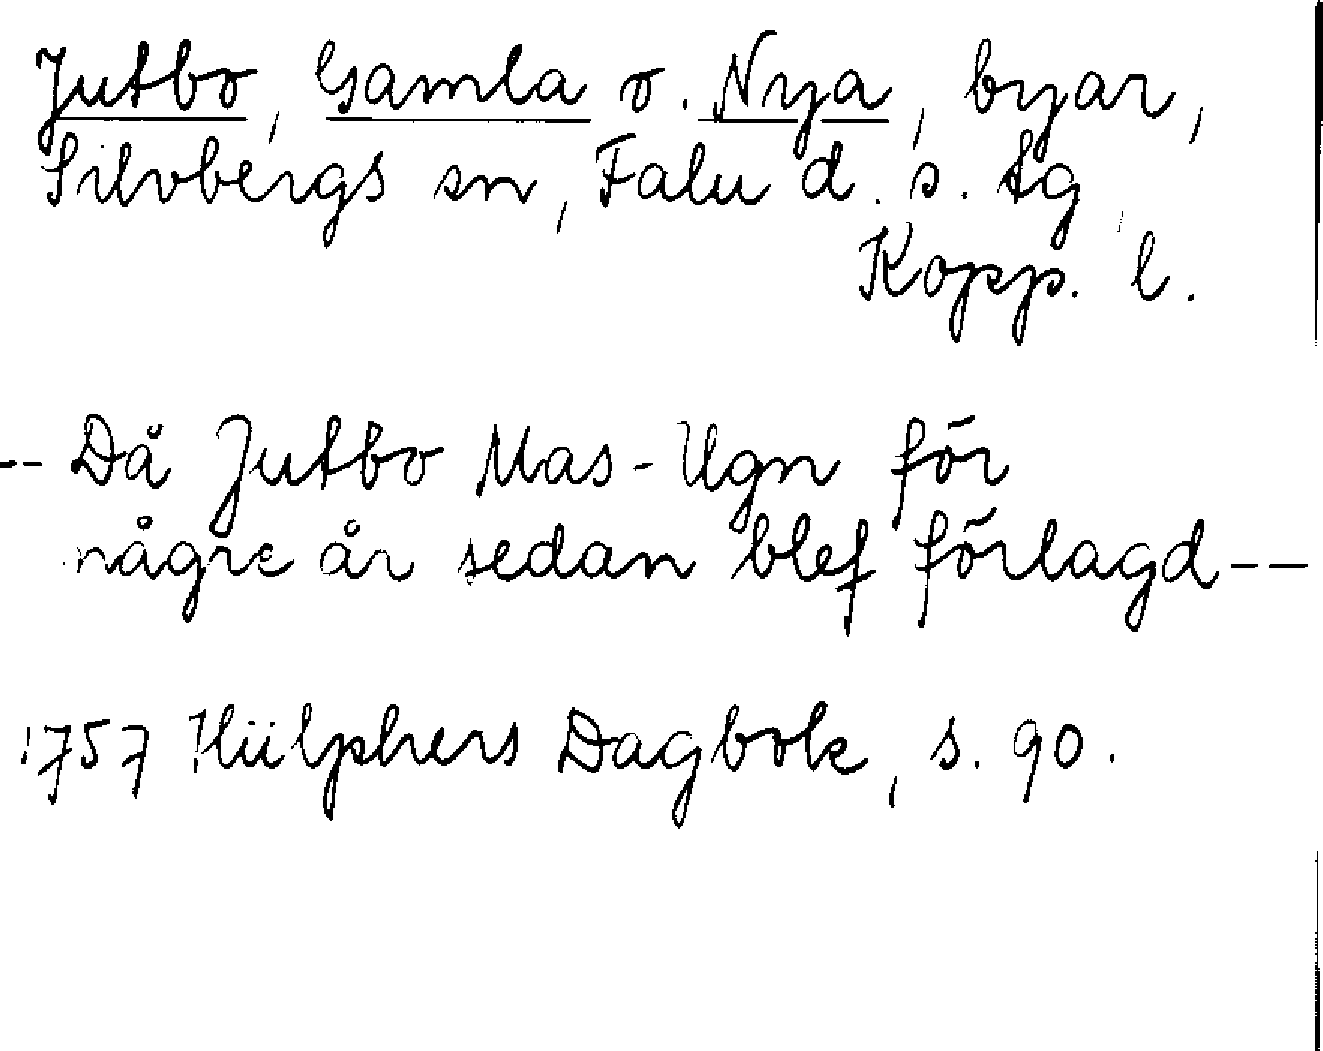 Jutbo, Gamla o. Nya, byar,
Silvbergs sn, Falu d. s. tg,
Kopp. l.
-- Då Jutbo Mas-Ugn för
någre år sedan blef förlagd --
1757 Hülphers Dagbok, s. 90.